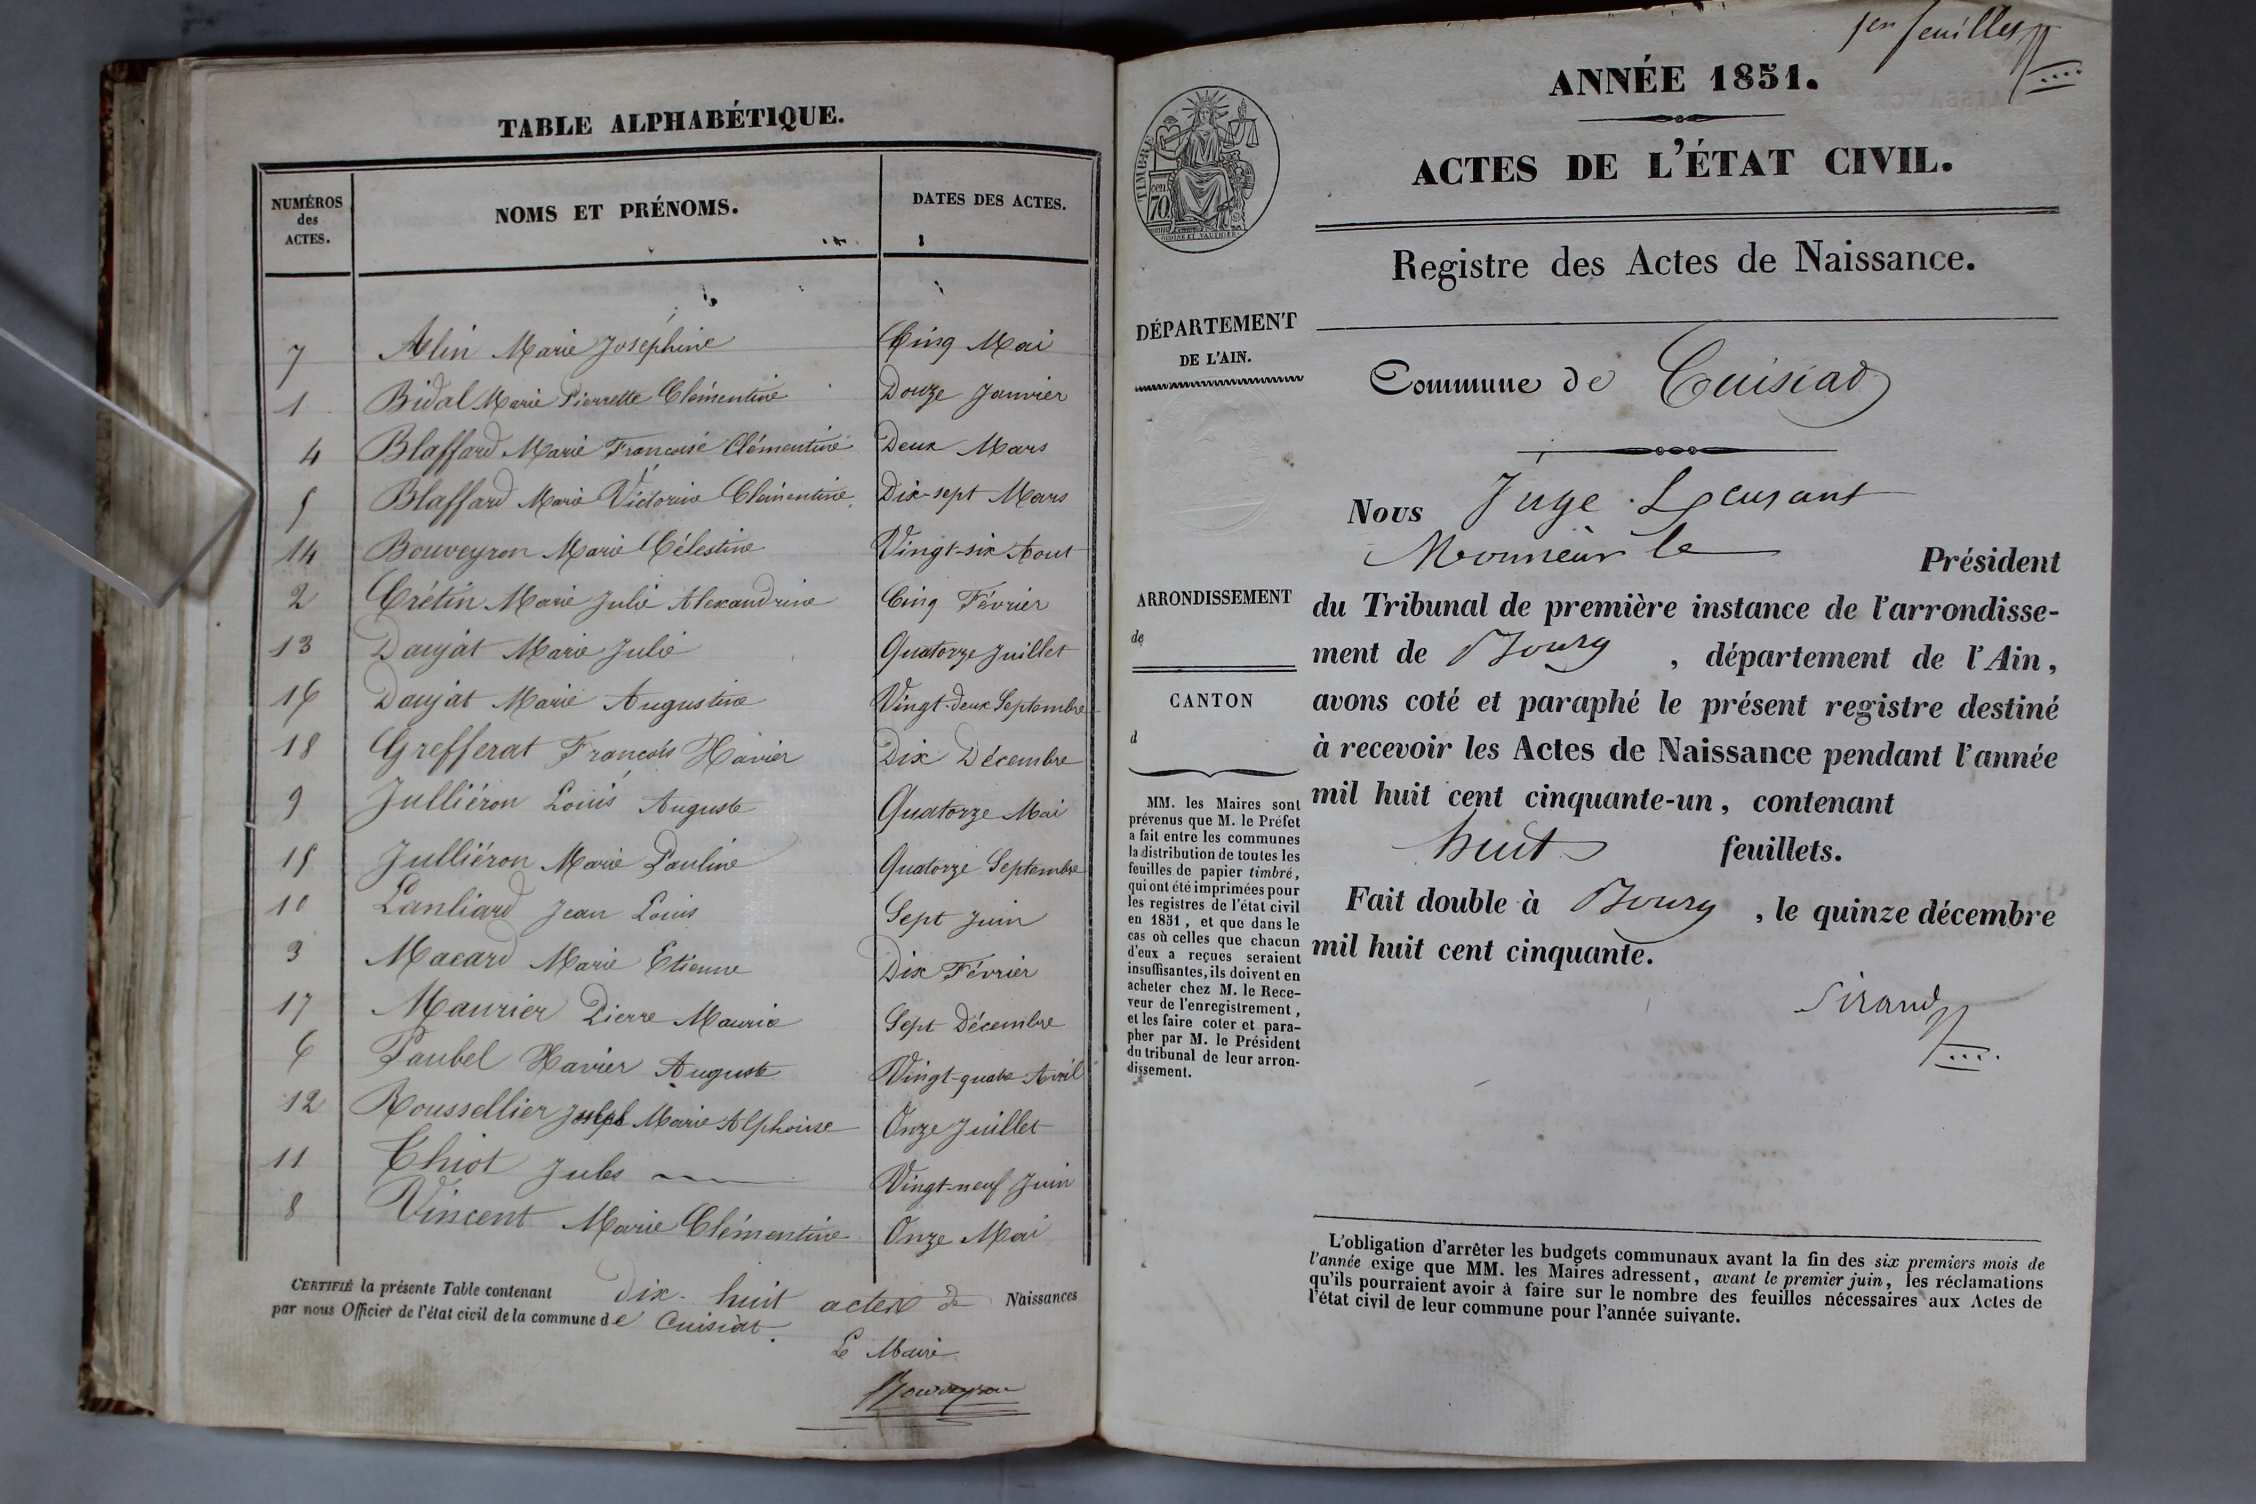 TABLE ALPHABÉTIQUE.
NUMÉROS des ACTES. NOMS ET PRÉNOMS. DATES DES ACTES.
7 Alin Marie Joséphine Cinq Mai
1 Bidal Marie Pierrette Clémentine Douze Janvier
4 Blaffard Marie Francoise Clémentine Deux Mars
5 Blaffard Marie Victorine Clémentine Dix-sept Mars
14 Bouveyron Marie Célestine Vingt-six Aout
2 Crétin Marie Julie Alexandrine Cinq Février
13 Daujat Marie Julie Quatorze Juillet
16 Daujat Marie Augustine Vingt-deux Septembre
18 Grefferat Francois Xavier Dix Décembre
9 Julliéron Louis Auguste Quatorze Mai
15 Julliéron Marie Pauline Quatorze Septembre
10 Lanliard Jean Louis Sept Juin
3 Macard Marie Etienne Dix Février
17 Maurier Pierre Marie Sept Décembre
6 Paubel Xavier Auguste Vingt-quatre Avril
12 Roussellier Joseph Marie Alphonse Onze Juillet
11 Thiot Jules Vingt-neuf Juin
8 Vincent Marie Clémentine Onze Mai
CERTIFIÉ la présente Table contenant dix-huit actes de Naissances
par nous Officier de l'état civil de la commune de Cuisiat.
Le Maire
Bouveyron
1er feuillet
ANNÉE 1851.
ACTES DE L'ÉTAT CIVIL.
TIMBRE
cen
70
Registre des Actes de Naissance.
DÉPARTEMENT
DE L'AIN.
ARRONDISSEMENT
de
CANTON
d
MM. les Maires sont
prévenus que M. le Préfet
a fait entre les communes
la distribution de toutes les
feuilles de papier timbré,
qui ont été imprimées pour
les registres de l'état civil
en 1851, et que dans le
cas où celles que chacun
d'eux a reçues seraient
insuffisantes, ils doivent en
acheter chez M. le Rece-
veur de l'enregistrement,
et les faire coter et para-
pher par M. le Président
du tribunal de leur arron-
dissement.
Commune de Cuisiat
Nous Juge
Monsieur le Président
du Tribunal de première instance de l'arrondisse-
ment de Bourg, département de l'Ain,
avons coté et paraphé le présent registre destiné
à recevoir les Actes de Naissance pendant l'année
mil huit cent cinquante-un, contenant
huit feuillets.
Fait double à Bourg, le quinze décembre
mil huit cent cinquante.
Sirand
L'obligation d'arrêter les budgets communaux avant la fin des six premiers mois de
l'année exige que MM. les Maires adressent, avant le premier juin, les réclamations
qu'ils pourraient avoir à faire sur le nombre des feuilles nécessaires aux Actes de
l'état civil de leur commune pour l'année suivante.